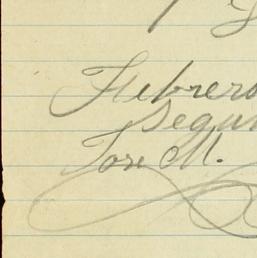 Febrero
Segun
Jose M.